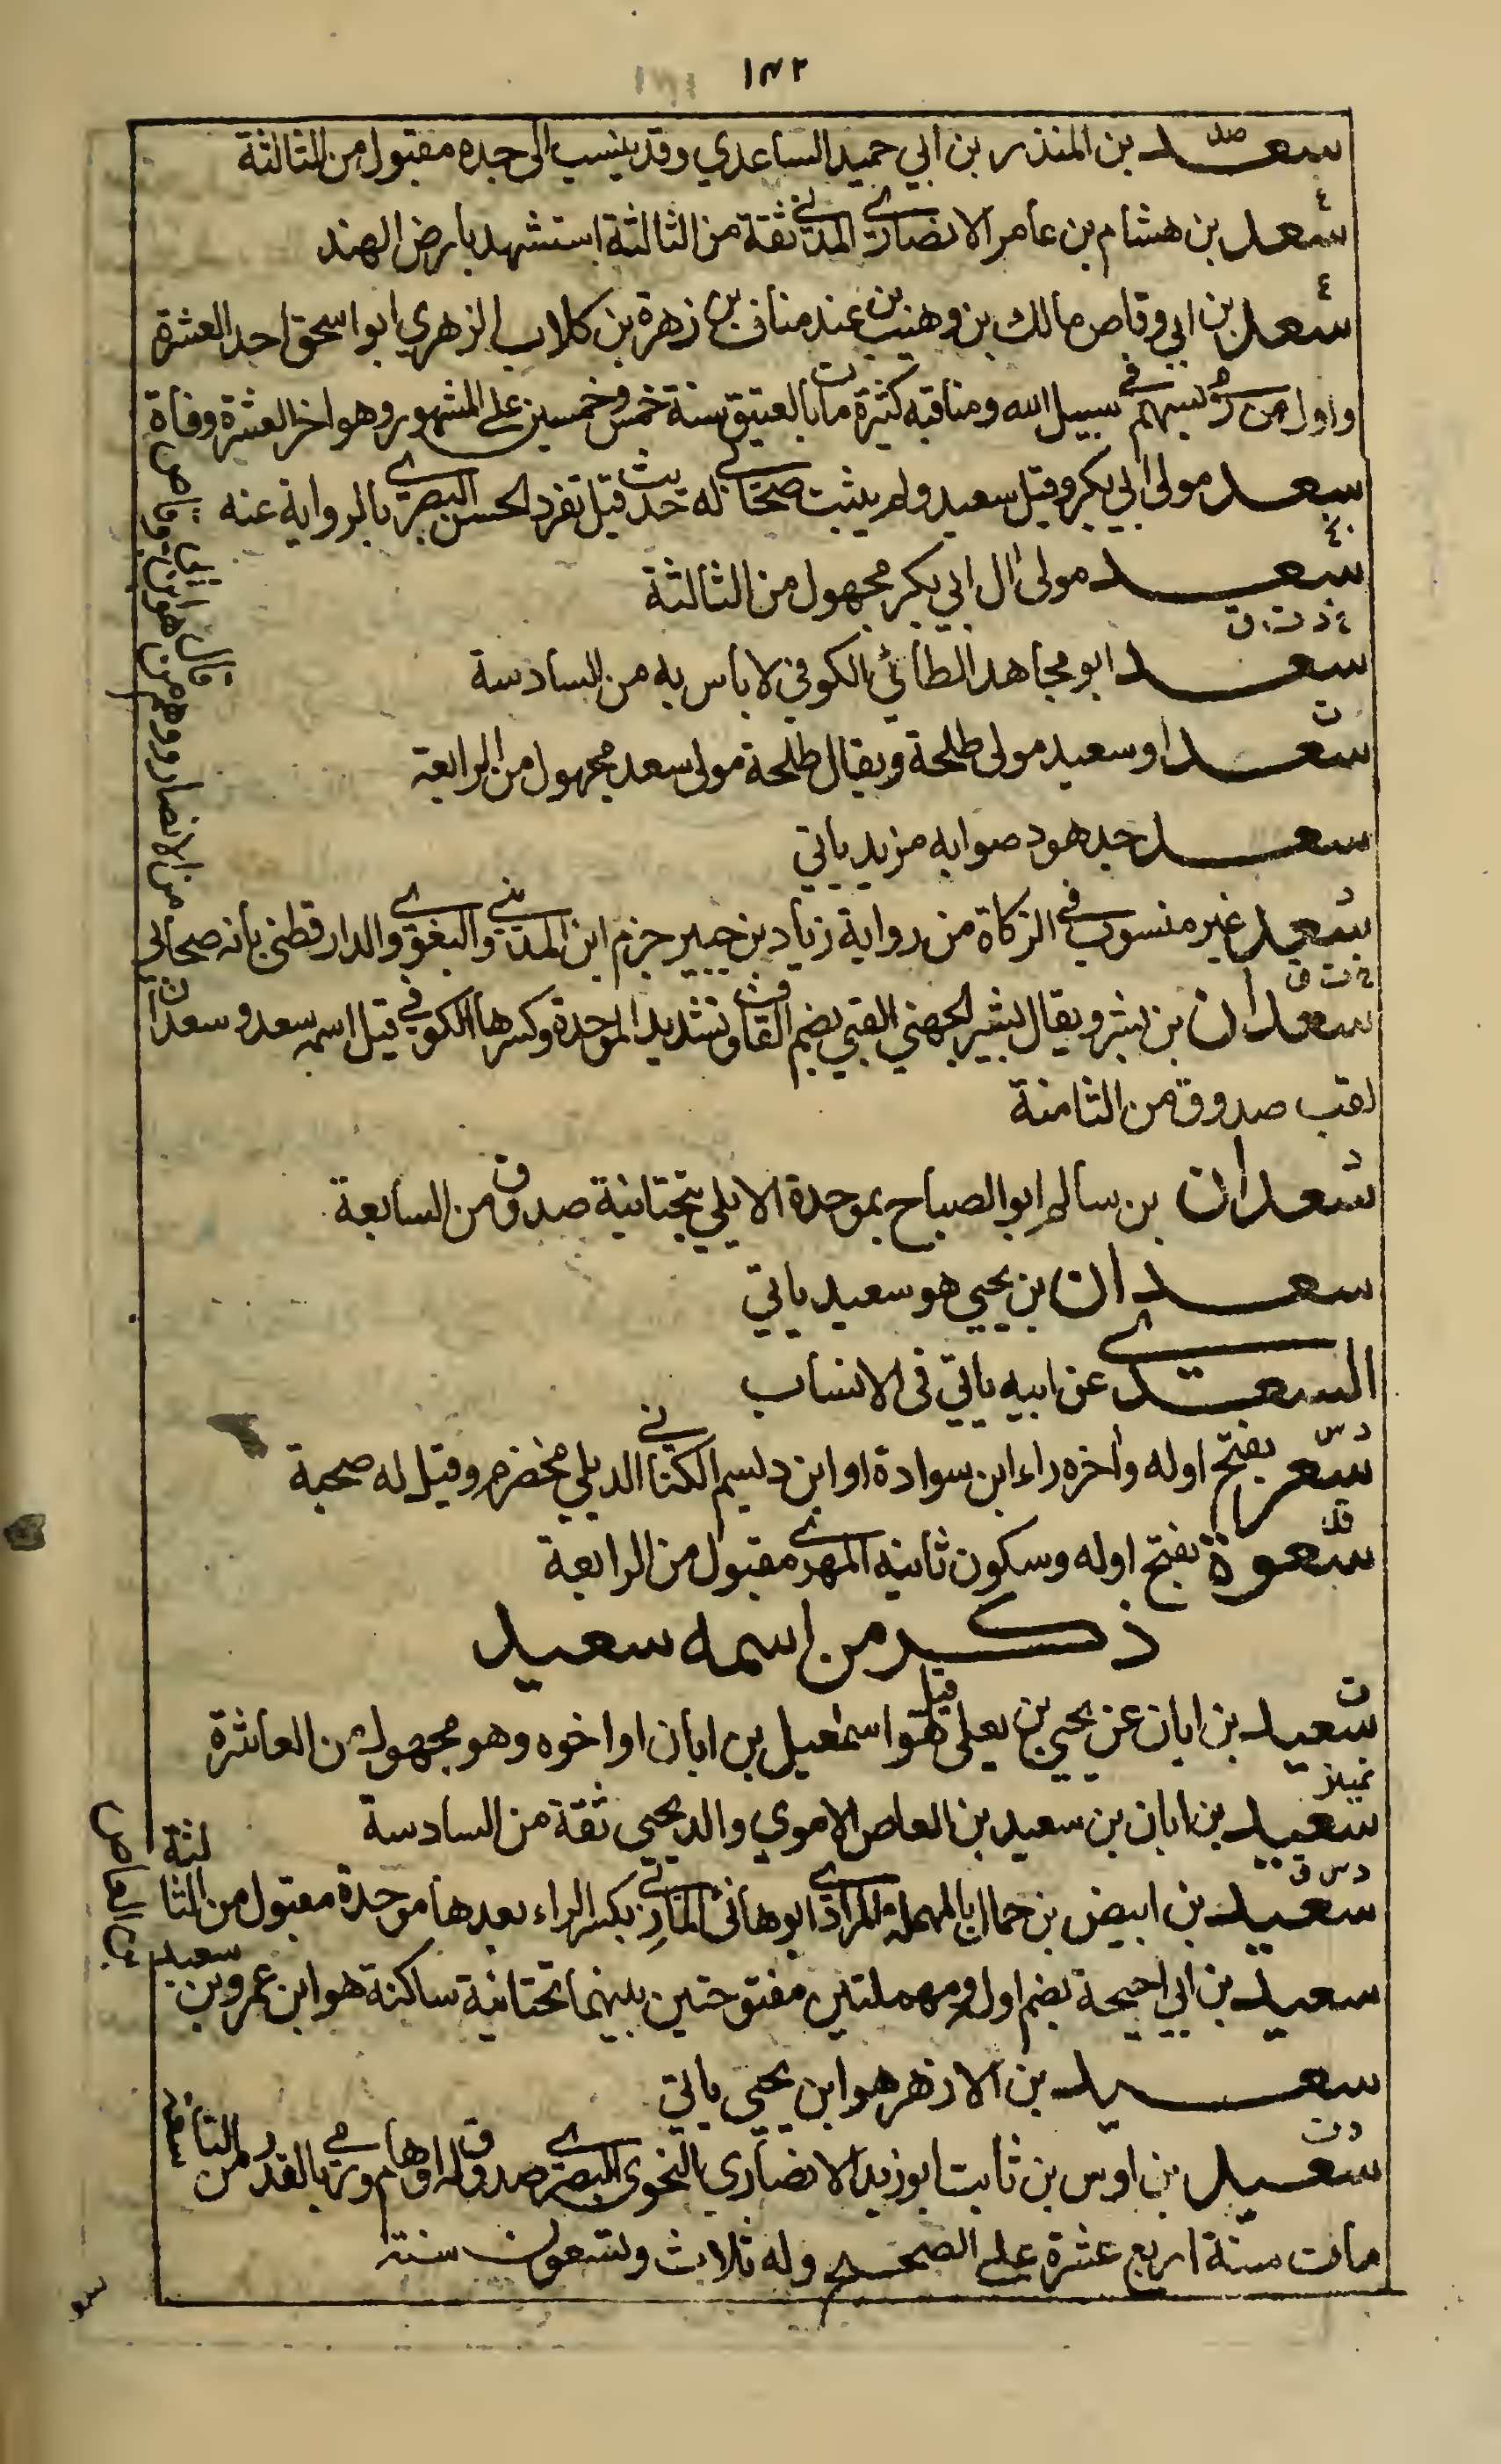 ١٤٢
سعد بن المنذر بن ابي حميد الساعدي وقد ينسب الى جده مقبول من الثالثة
صد
سعد بن هشام بن عامر الانصاري المدني ثقة من الثالثة استشهد بارض الهند
ع
سعد بن ابي وقاص مالك بن وهيب بن عبد مناف بن زهرة بن كلاب الزهري ابو اسحق احد العشرة
ع
واول من رمى بسهم في سبيل الله ومناقبه كثيرة مات بالعقيق سنة خمس وخمسين على المشهور وهو اخر العشرة وفاة
سعد مولى ابي بكر وقيل سعيد ولم يثبت صحابي له حديث قيل تفرد الحسن البصري بالرواية عنه
ق
سعد مولى ال ابي بكر مجهول من الثالثة
خ د ت ق
سعد ابو مجاهد الطائي الكوفي لا باس به من السادسة
ت
سعد او سعيد مولى طلحة ويقال طلحة مولى سعد مجهول من الرابعة
سعد جد هود صوابه مزيد ياتي
د
سعد غير منسوب في الزكاة من رواية زياد بن جبير جزم ابن المديني والبغوي والدارقطني بانه صحابي
خ ت ق
سعدان بن بشر ويقال بشير الجهني القبي بضم القاف وتشديد الموحدة وكسرها الكوفي قيل اسمه سعد وسعدان
لقب صدوق من الثامنة
د
سعدان بن سالم ابو الصباح بموحدة الايلي بتحتانية صدوق من السابعة
سعدان بن يحيى هو سعيد ياتي
السعدي عن ابيه ياتي في الانساب
د س
سعر بفتح اوله واخره راء ابن سوادة او ابن ديسم الكناني الديلي مخضرم وقيل له صحبة
سعوة بفتح اوله وسكون ثانيه المهري مقبول من الرابعة
ذكر من اسمه سعيد
ت
سعيد بن ابان عن يحيى بن يعلى قيل هو اسمعيل بن ابان او اخوه وهو مجهول من العاشرة
تمييز
سعيد بن ابان بن سعيد بن العاص الاموي والد يحيى ثقة من السادسة
د س ق
سعيد بن ابيض بن حمال بالمهملة المرادي ابو هانئ الماربي بكسر الراء بعدها موحدة مقبول من الثالثة
سعيد بن ابي احيحة بضم اوله ومهملتين مفتوحتين بينهما تحتانية ساكنة هو ابن عمرو بن
سعيد بن العاص
سعيد بن الازهر هو ابن يحيى ياتي
د ت
سعيد بن اوس بن ثابت ابو زيد الانصاري النحوي البصري صدوق له اوهام ورمي بالقدر من التاسعة
مات سنة اربع عشرة على الصحيح وله ثلاث وتسعون سنة